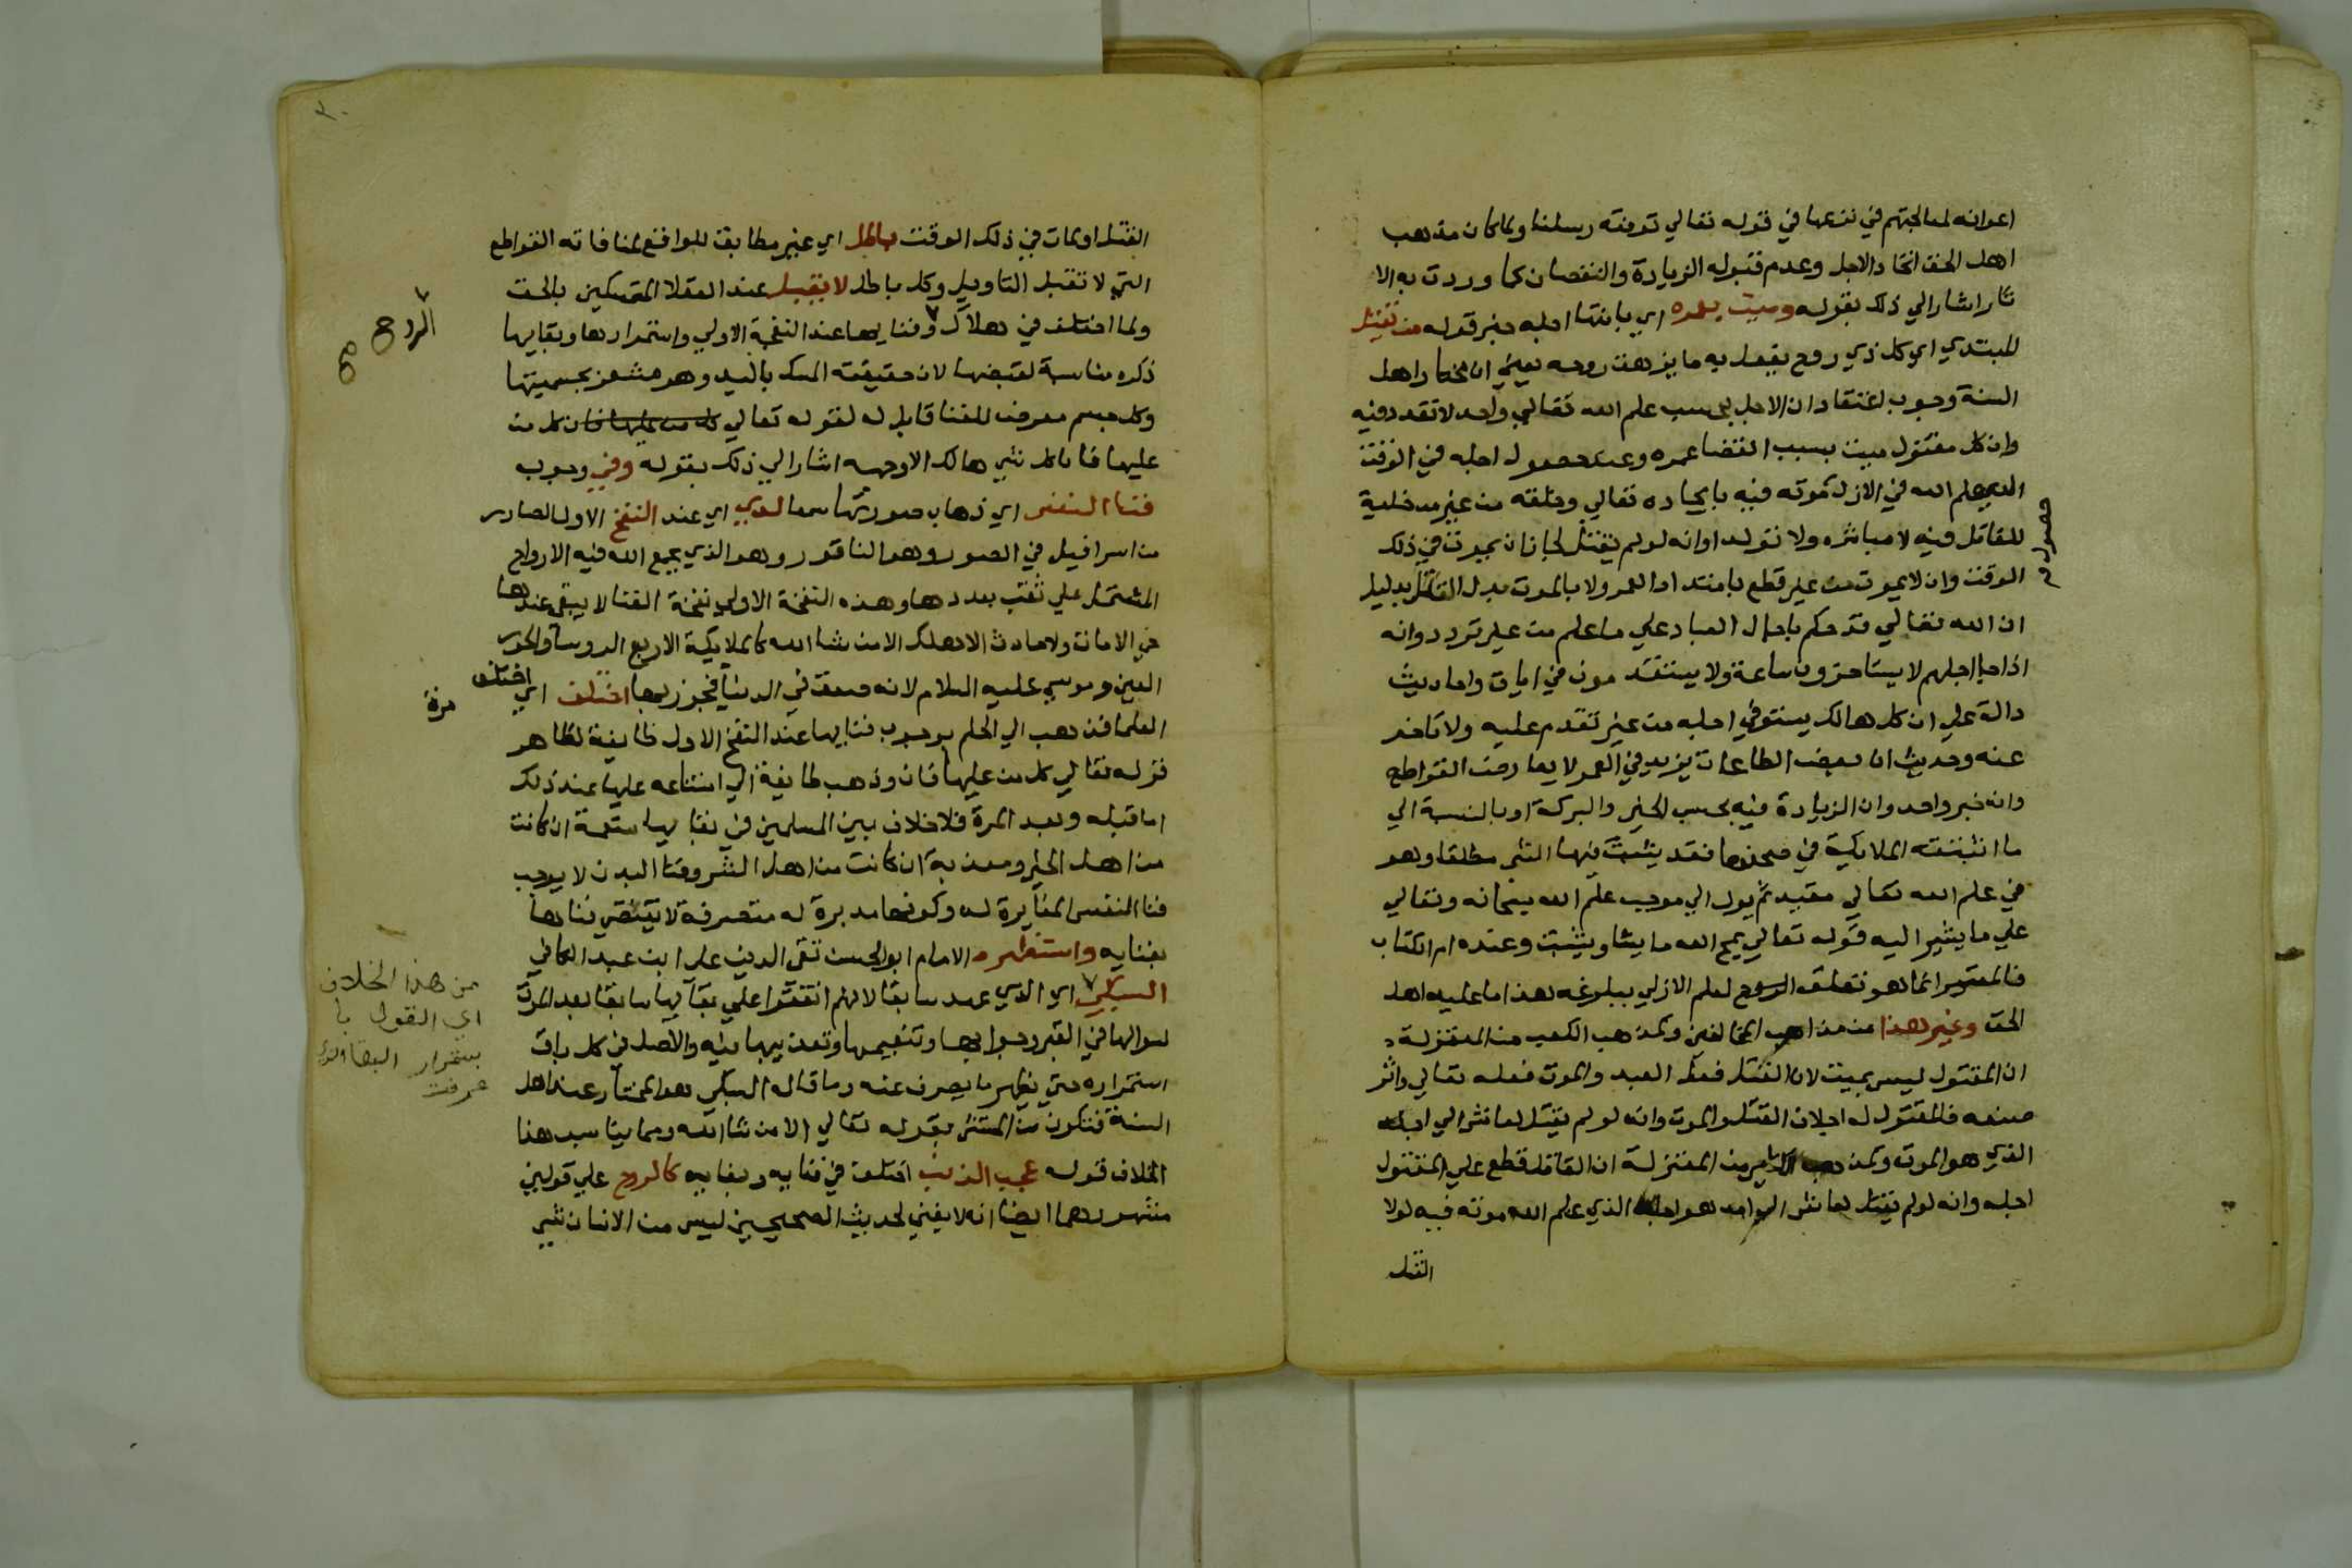 اعوانه لمعالجتهم في نزعها في قوله تعالي توفته رسلنا ولما كان مذهب
اهل الحق اتحاد الاجل وعدم قبوله الزيادة والنقصان كما وردت به الا
ثار اشار الي ذلك بقوله وميت بعمره اي بانتها اجله خبر قوله من تقتل
للمبتدي اي كل ذي روح يفعل به ما يزهق روحه يعني ان مختار اهل
السنة وجوب اعتقاد ان الاجل بحسب علم الله تعالي واحد لا تعدد فيه
وان كل مقتول ميت بسبب انقضا عمره وعند حصول اجله في الوقت
الذي علم الله في الازل موته فيه بايجاده تعالي وخلقه من غير مدخلية
للقاتل فيه لا مباشرة ولا تولدا وانه لو لم يقتل لجاز ان يموت في ذلك
الوقت وان لا يموت من غير قطع بامتداد العمر ولا بالموت بدل القتل بدليل
ان الله تعالي قد حكم باجال العباد علي ما علم من غير تردد وانه
اذا جا اجلهم لا يستاخرون ساعة ولا يستقدمون في ايات واحاديث
دالة علي ان كل هالك يستوفي اجله من غير تقدم عليه ولا تاخر
عنه وحديث ان بعض الطاعات يزيد في العمر لا يعارض القواطع
وانه خبر واحد وان الزيادة فيه بحسب الخير والبركة او بالنسبة الي
ما اثبتته الملايكة في صحفها فقد يثبت فيها الشي مطلقا وهو
في علم الله تعالي مقيد ثم يول الي موجب علم الله سبحانه وتعالي
علي ما يشير اليه قوله تعالي يمح الله ما يشا ويثبت وعنده ام الكتاب
فالمعتبر انما هو تعلق العلم الازلي ببلوغه هذا ما عليه اهل
الحق وغير هذا من مذاهب المخالفين كمذهب الكعبي من المعتزلة
ان المقتول ليس بميت لان القتل فعل العبد والموت فعله تعالي واثر
صنعه فالمقتول له اجلان القتل والموت وانه لو لم يقتل لعاش الي اجله
الذي هو الموت وكمذهب من المعتزلة ان القاتل قطع علي المقتول
اجله وانه لو لم يقتل لعاش الي امد هو اجله الذي علم الله موته فيه لولا
القتل
حصول
القتل او مات في ذلك الوقت باطل اي غير مطابق للواقع لمنافاته القواطع
التي لا تقبل التاويل وكل باطل لا يقبل عند العقلا المتمسكين بالحق
ولما اختلف في هلاك وفنايها عند النفخة الاولي واستمرارها وبقايها
ذكره مناسبة لقبضها لان حقيقته المسك باليد وهو مشعر بجسميتها
وكل جسم معرض للفنا قابل له لقوله تعالي كل من عليها فان كل من
عليها فان كل شي هالك الا وجهه اشار الي ذلك بقوله وفي وجوب
فنا النفس اي ذهاب صورتها سمعا لدي اي عند النفخ الاول الصادر
من اسرافيل في الصور وهو الناقور وهو الذي يجمع الله فيه الارواح
المشتمل علي ثقب بعددها وهذه النفخة الاولي نفخة الفنا لا يبقي عندها
حي الا مات ولا حادث الا هلك الا من شا الله كالملايكة الاربع الروسا والحور
العين وموسي عليه السلام لانه صعق في الدنيا فجوزي بها اختلف اي اختلف
العلما فذهب الي الحكم بوجوب فنايها عند النفخ الاول طايفة لظاهر
قوله تعالي كل من عليها فان وذهب طايفة الي امتناعه عليها عند ذلك
اما قبله وبعد المرة فلا خلاف بين المسلمين في بقايها منعمة ان كانت
من اهل الخير ومعذبة ان كانت من اهل الشر وفنا البدن لا يوجب
فنا النفس المغايرة له وكونها مدبرة له متصرفة لا يقتضي فناها
بفنايه واستظهر الامام ابو الحسن تقي الدين علي ابن عبد الكافي
السبكي اي الذي عهد سابقا لانهم اتفقوا علي بقايها سابقا بعد الموت
لسوالها في القبر وجوابها وتنعيمها وتعذيبها فيه والاصل في كل باق
استمراره حتي يظهر ما يصرف عنه وما قاله السبكي هو المختار عند اهل
السنة فتكون من المستثني بقوله تعالي الا من شا الله ومما يناسب هذا
الخلاف قوله عجب الذنب اختلف في فنايه وبقايه كالروح علي قولين
مشهورهما ايضا انه لا يفني لحديث الصحيحين ليس من الانسان شي
الروح صح
مرة
من هذا الخلاف
اي القول با
ستمرار البقا الذي
عرفت